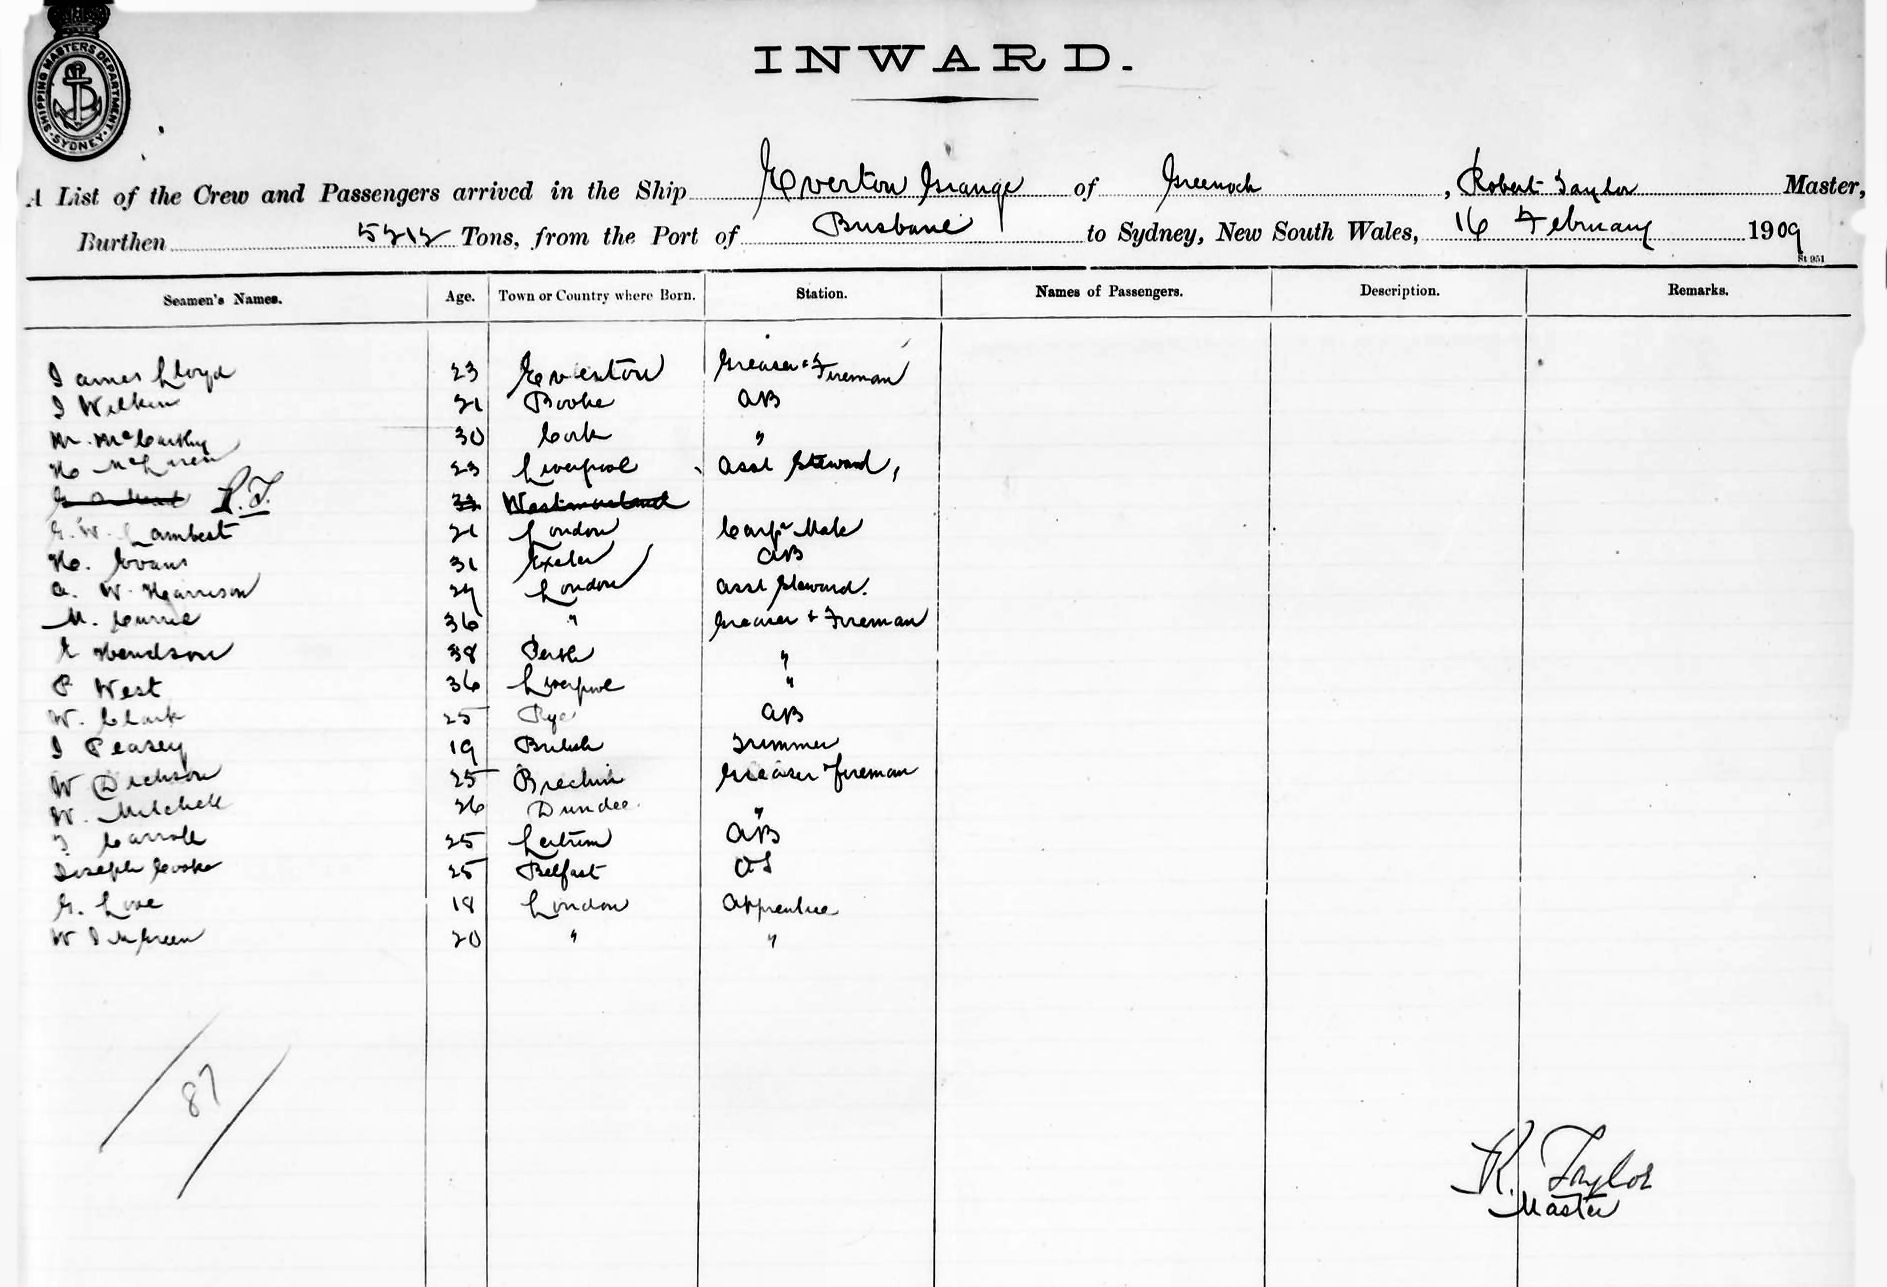 SHIPPING MASTERS DEPARTMENT · SYDNEY ·
INWARD.
A List of the Crew and Passengers arrived in the Ship Everton Grange of Greenock, Robert Taylor Master,
Burthen 5212 Tons, from the Port of Brisbane to Sydney, New South Wales, 16 February 1909
St 951
Seamen's Names. Age. Town or Country where Born. Station. Names of Passengers. Description. Remarks.
James Lloyd 23 Everton Greaser & Fireman
J Wilkin 21 Bootle AB
M. McCarthy 30 Cork "
H McLaren 23 Liverpool Asst Steward,
R.T. 32 Westmorland
G. W. Lambert 21 London Carps Mate
H. Evans 31 Exeter AB
A. W. Harrison 27 London Asst Steward.
M. Currie 36 " Greaser & Fireman
E Hendson 38 Perth "
P West 36 Liverpool "
W. Clark 25 Rye AB
J Peasey 19 British Trimmer
W Dickson 25 Brechin Greaser & fireman
W. Mitchell 26 Dundee "
T Carroll 25 Leitrim AB
Joseph Cooke 25 Belfast OS
G. Love 18 London Apprentice
W 20 " "
87
R. Taylor
Master